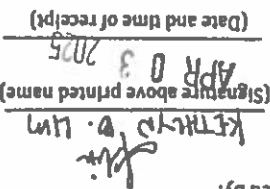 by:
KETHLYN D. LIM
(Signature above printed name)
APR 03 2025
(Date and time of receipt)